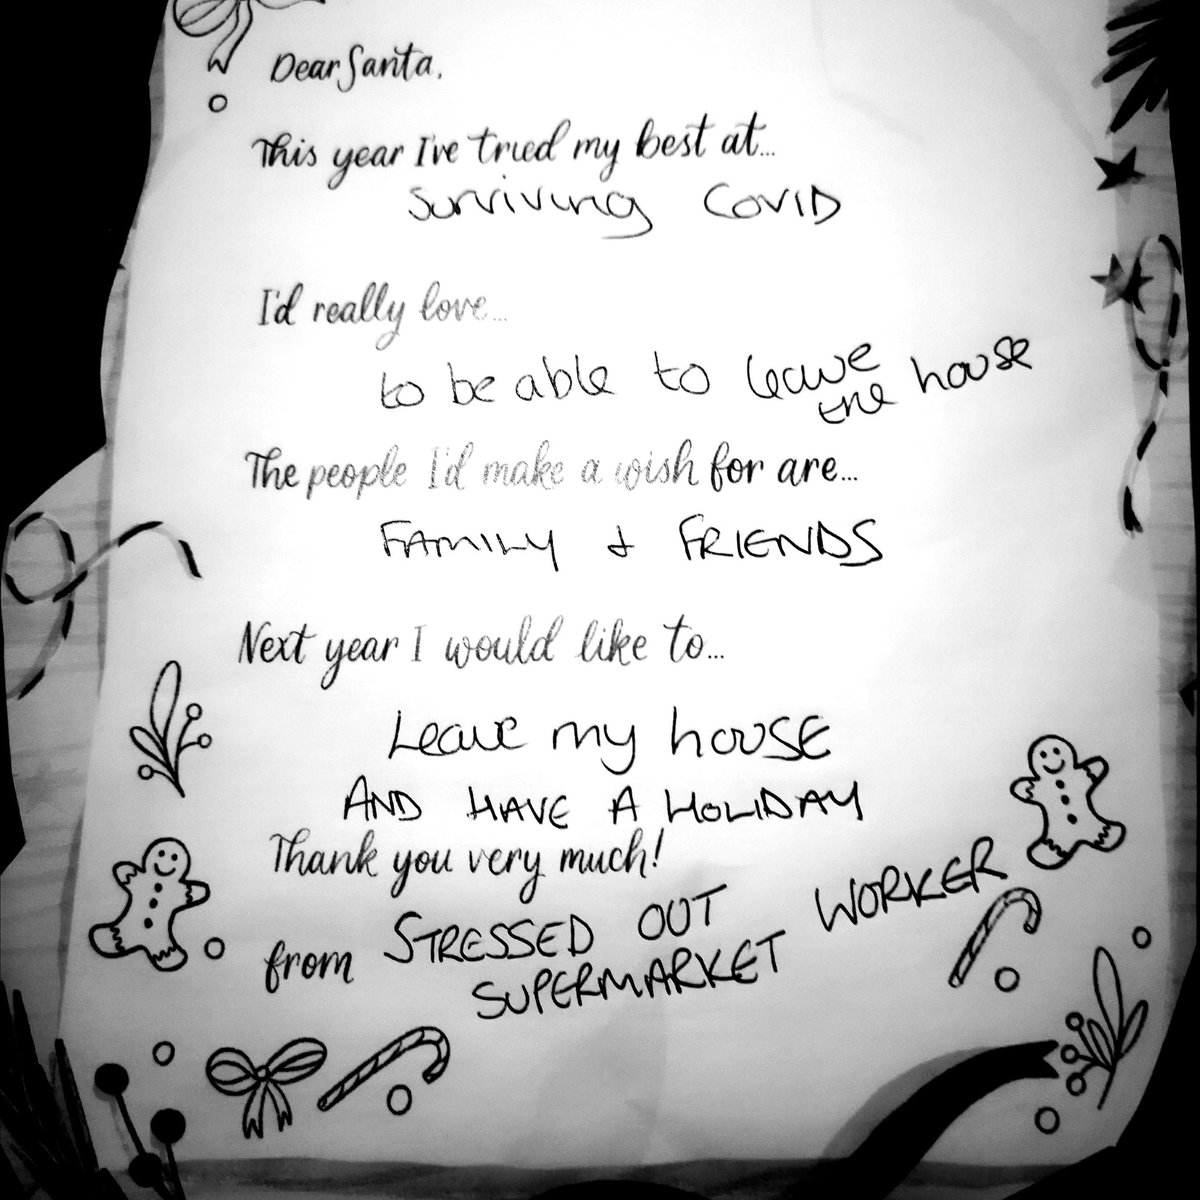 Dear Santa,
This year I've tried my best at...
Surviving COVID
I'd really love...
to be able to leave the house
The people I'd make a wish for are...
FAMILY & FRIENDS
Next year I would like to...
Leave my house
AND HAVE A HOLIDAY
Thank you very much!
from STRESSED OUT
SUPERMARKET WORKER